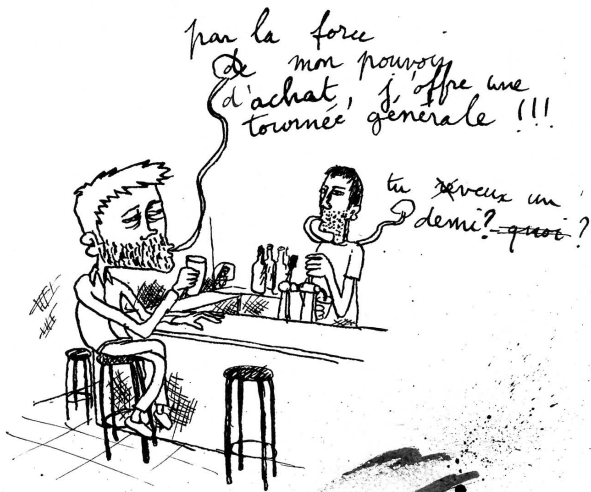 par la force
de mon pouvoir
d'achat, j'offre une
tournée générale !!!
tu veux un
demi? quoi ?